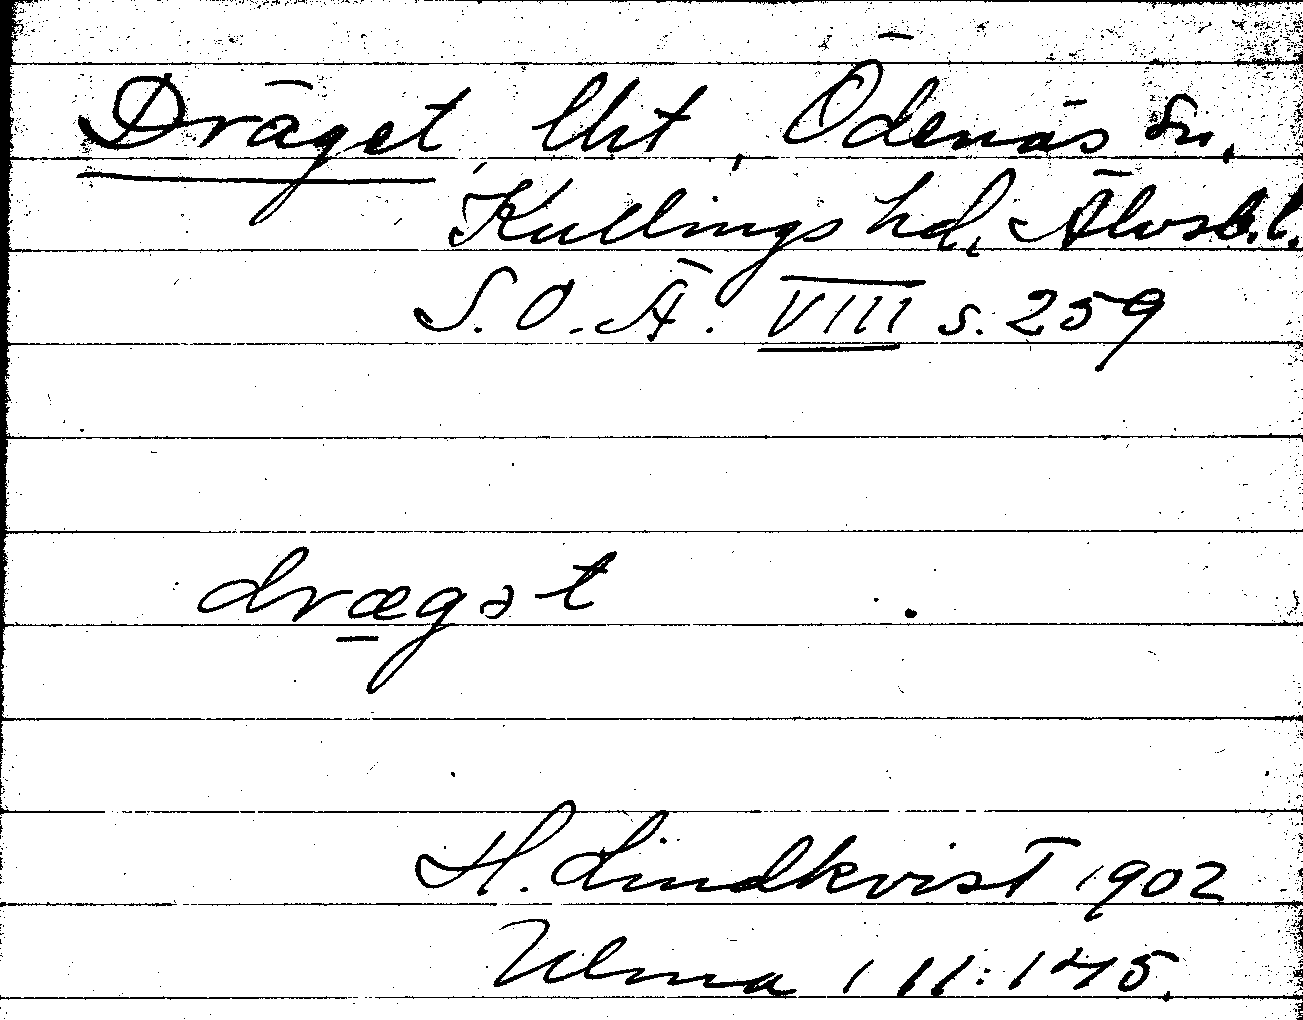 Dräget, lht, Ödenäs sn,
Kullings hd, Älvsb. l.
S.O.Ä. VIII s. 259
drægət
H. Lindkvist 1902
Ulma 111:145.